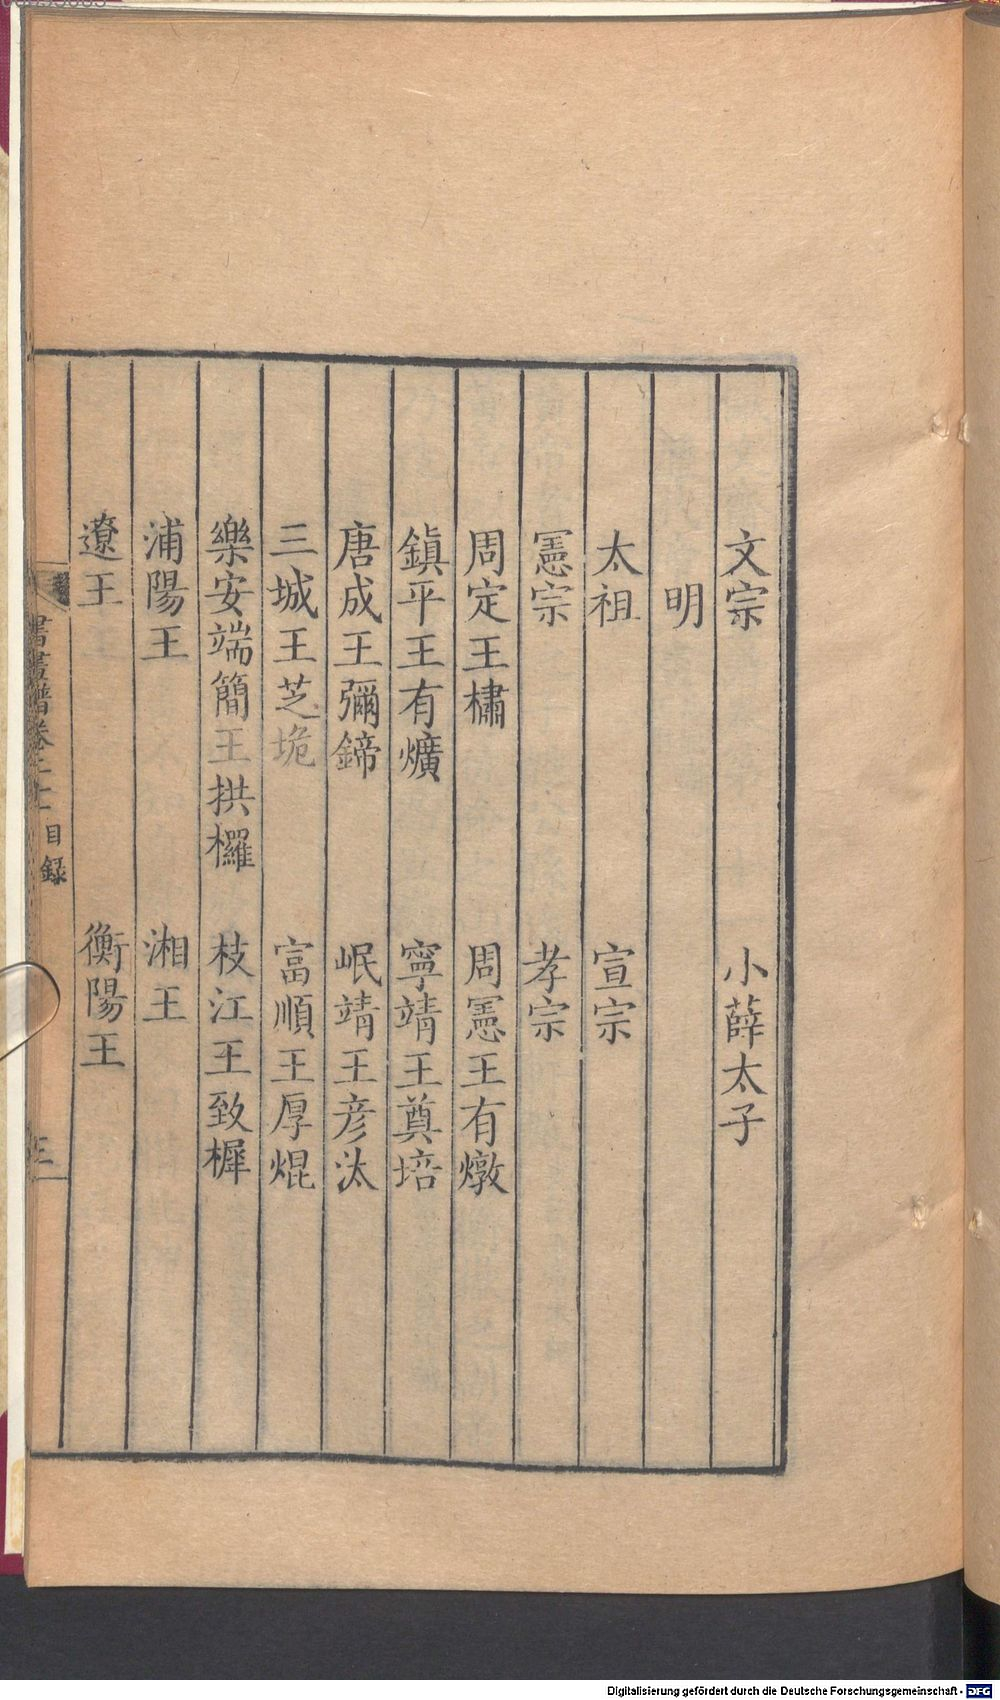 文宗　小薛太子
明
太祖　宣宗
憲宗　孝宗
周定王橚　周憲王有燉
鎮平王有爌　寧靖王奠培
唐成王彌鍗　岷靖王彥汰
三城王芝垝　富順王厚焜
樂安端簡王拱欏　枝江王致樨
浦陽王　湘王
遼王　衡陽王
書畫譜卷二十　目錄
三
Digitalisierung gefördert durch die Deutsche Forschungsgemeinschaft - DFG